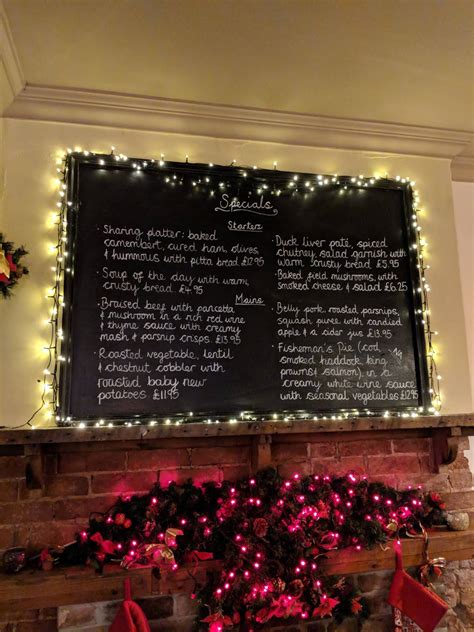 Specials
Starters
· Sharing platter: baked
camembert, cured ham, olives,
& hummous with pitta bread £12.95
· Soup of the day with warm
crusty bread £4.95
· Duck liver pate, spiced
chutney, salad garnish with
warm crusty bread £5.95
· Baked field mushrooms, with
smoked cheese & salad £6.25
Mains
· Braised beef with pancetta
& mushroom in a rich red wine
& thyme sauce with creamy
mash & parsnip crisps £13.95
· Roasted vegetable, lentil
& chestnut cobbler with
roasted baby new
potatoes £11.95
· Belly pork, roasted parsnips,
squash puree with candied
apple & a cider jus £13.95
· Fisherman's Pie (cod,
smoked haddock, king
prawns & salmon), in a
creamy white wine sauce
with seasonal vegetables £12.95